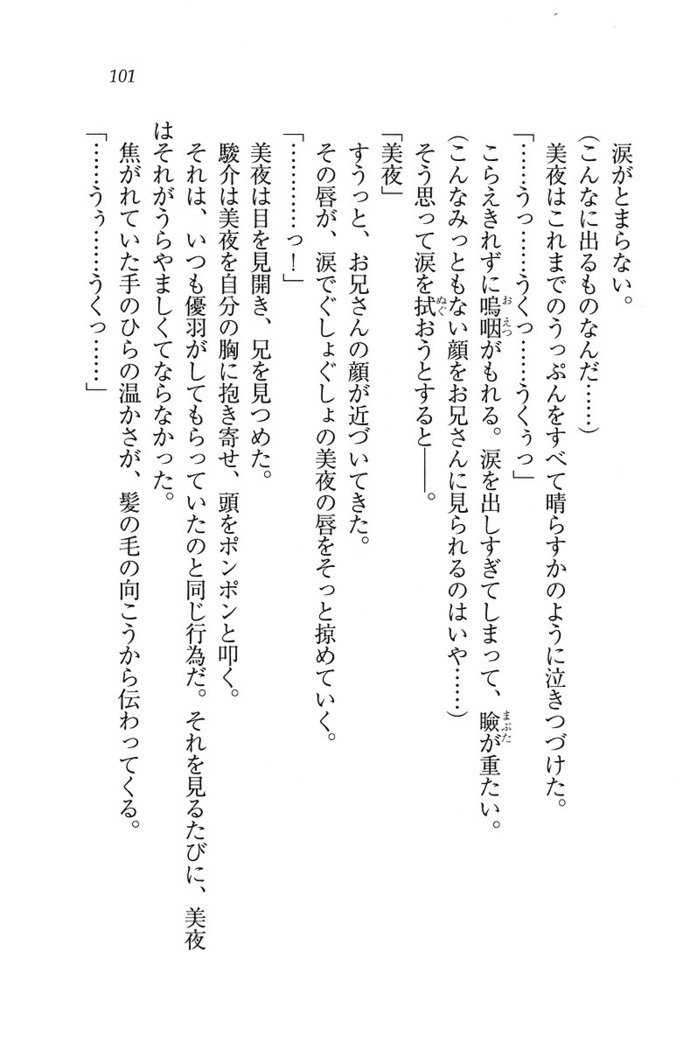 101
涙がとまらない。
(こんなに出るものなんだ……)
美夜はこれまでのうっぷんをすべて晴らすかのように泣きつづけた。
「……うっ……うくっ……うくぅっ」
こらえきれずに嗚咽がもれる。涙を出しすぎてしまって、瞼が重たい。
(こんなみっともない顔をお兄さんに見られるのはいや……)
そう思って涙を拭おうとすると――。
「美夜」
すうっと、お兄さんの顔が近づいてきた。
その唇が、涙でぐしょぐしょの美夜の唇をそっと掠めていく。
「…………っ!」
美夜は目を見開き、兄を見つめた。
駿介は美夜を自分の胸に抱き寄せ、頭をポンポンと叩く。
それは、いつも優羽がしてもらっていたのと同じ行為だ。それを見るたびに、美夜
はそれがうらやましくてならなかった。
焦がれていた手のひらの温かさが、髪の毛の向こうから伝わってくる。
「……うぅ……うくっ……」